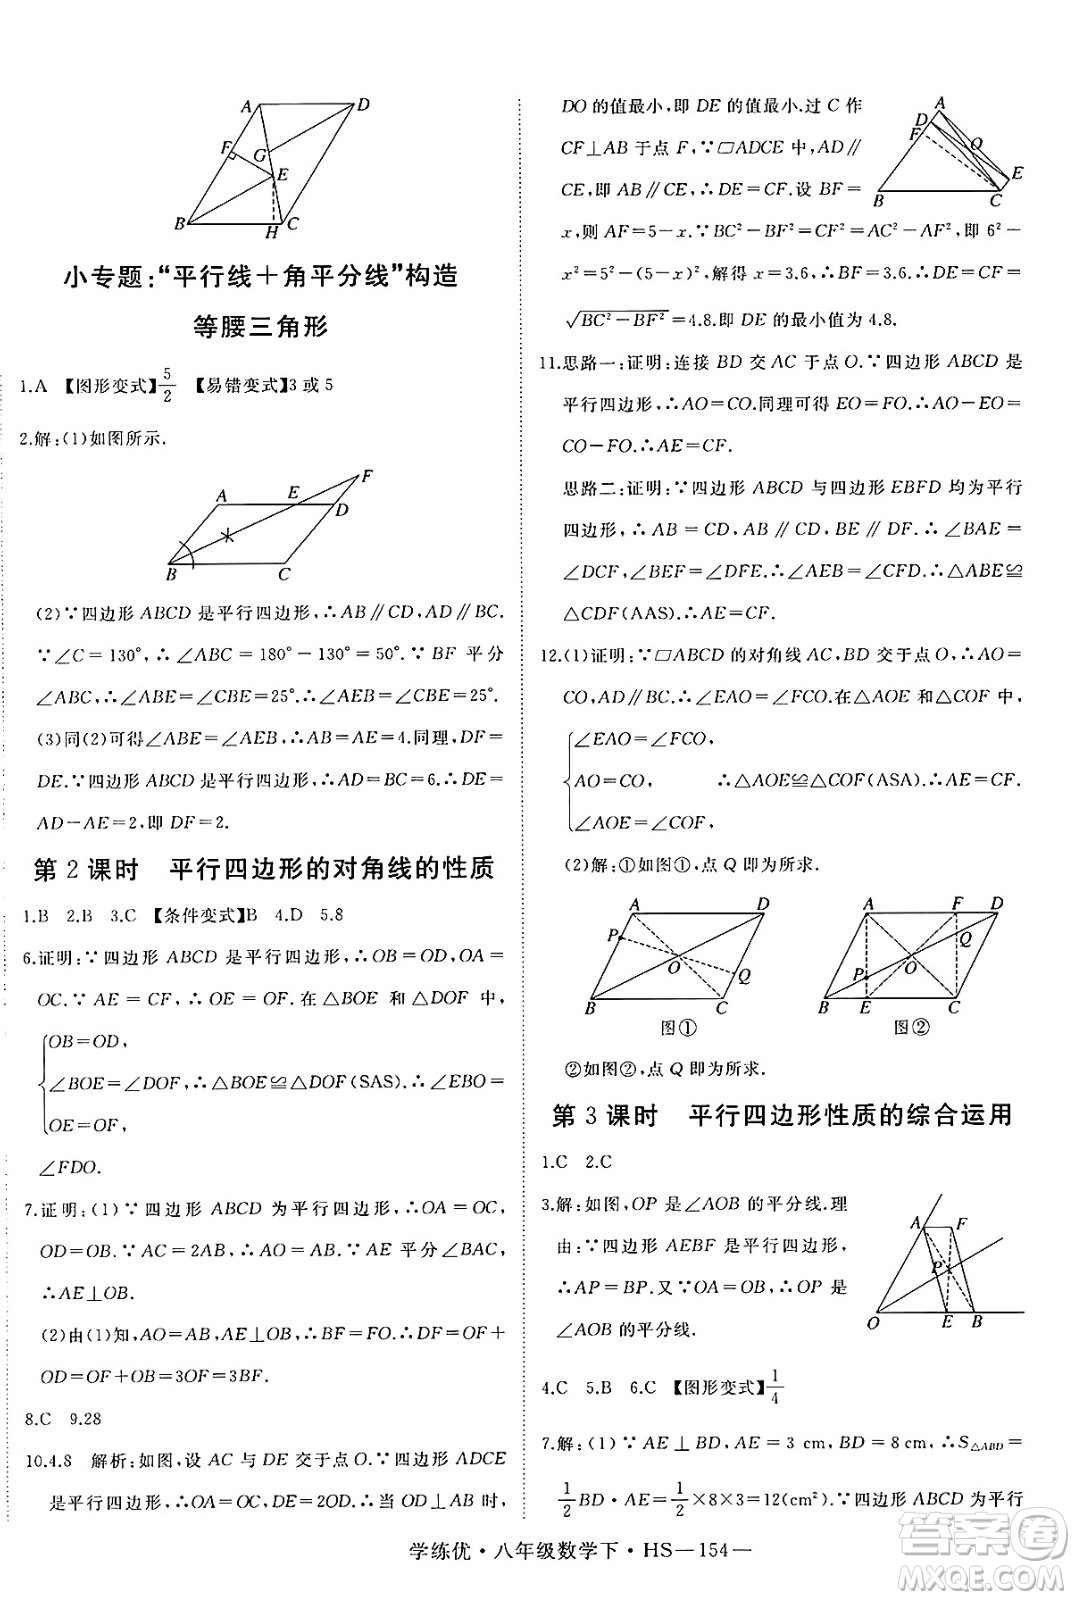 A D
F
G
E
B H C
小专题:“平行线＋角平分线”构造
等腰三角形
1.A 【图形变式】5/2 【易错变式】3 或 5
2.解:(1)如图所示.
F
A E D
B C
(2)∵四边形 ABCD 是平行四边形,∴AB∥CD,AD∥BC.
∵∠C=130°,∴∠ABC=180°-130°=50°.∵BF 平分
∠ABC,∴∠ABE=∠CBE=25°.∴∠AEB=∠CBE=25°.
(3)同(2)可得∠ABE=∠AEB,∴AB=AE=4.同理,DF=
DE.∵四边形 ABCD 是平行四边形,∴AD=BC=6.∴DE=
AD-AE=2,即 DF=2.
第 2 课时 平行四边形的对角线的性质
1.B 2.B 3.C 【条件变式】B 4.D 5.8
6.证明:∵四边形 ABCD 是平行四边形,∴OB=OD,OA=
OC.∵AE=CF,∴OE=OF.在△BOE 和△DOF 中,
OB=OD,
∠BOE=∠DOF,∴△BOE≌△DOF(SAS).∴∠EBO=
OE=OF,
∠FDO.
7.证明:(1)∵四边形 ABCD 为平行四边形,∴OA=OC,
OD=OB.∵AC=2AB,∴OA=AB.∵AE 平分∠BAC,
∴AE⊥OB.
(2)由(1)知,AO=AB,AE⊥OB,∴BF=FO.∴OF+
OD=OF+OB=3OF=3BF.
8.C 9.28
10.4.8 解析:如图,设 AC 与 DE 交于点 O.∵四边形 ADCE
是平行四边形,∴OA=OC,DE=2OD.∴当 OD⊥AB 时,
DO 的值最小,即 DE 的值最小.过 C 作
CF⊥AB 于点 F,∵▱ADCE 中,AD∥
CE,即 AB∥CE,∴DE=CF.设 BF=
x,则 AF=5-x.∵BC²-BF²=CF²=AC²-AF²,即 6²-
x²=5²-(5-x)²,解得 x=3.6,∴BF=3.6.∴DE=CF=
√(BC²-BF²)=4.8.即 DE 的最小值为 4.8.
A
D
F O
E
B C
11.思路一:证明:连接 BD 交 AC 于点 O.∵四边形 ABCD 是
平行四边形,∴AO=CO.同理可得 EO=FO.∴AO-EO=
CO-FO.∴AE=CF.
思路二:证明:∵四边形 ABCD 与四边形 EBFD 均为平行
四边形,∴AB=CD,AB∥CD,BE∥DF.∴∠BAE=
∠DCF,∠BEF=∠DFE.∴∠AEB=∠CFD.∴△ABE≌
△CDF(AAS).∴AE=CF.
12.(1)证明:∵▱ABCD 的对角线 AC,BD 交于点 O,∴AO=
CO,AD∥BC.∴∠EAO=∠FCO.在△AOE 和△COF 中,
∠EAO=∠FCO,
AO=CO, ∴△AOE≌△COF(ASA).∴AE=CF.
∠AOE=∠COF,
(2)解:①如图①,点 Q 即为所求.
A D
P
O
Q
B C
图①
A F D
Q
O
P
B E C
图②
②如图②,点 Q 即为所求.
第 3 课时 平行四边形性质的综合运用
1.C 2.C
3.解:如图,OP 是∠AOB 的平分线.理
由:∵四边形 AEBF 是平行四边形,
∴AP=BP.又∵OA=OB,∴OP 是
∠AOB 的平分线.
A F
P
O E B
4.C 5.B 6.C 【图形变式】1/4
7.解:(1)∵AE⊥BD,AE=3 cm,BD=8 cm,∴S△ABD=
1/2 BD·AE=1/2×8×3=12(cm²).∵四边形 ABCD 为平行
学练优·八年级数学下·HS—154—
答案圈
MXQE.COM